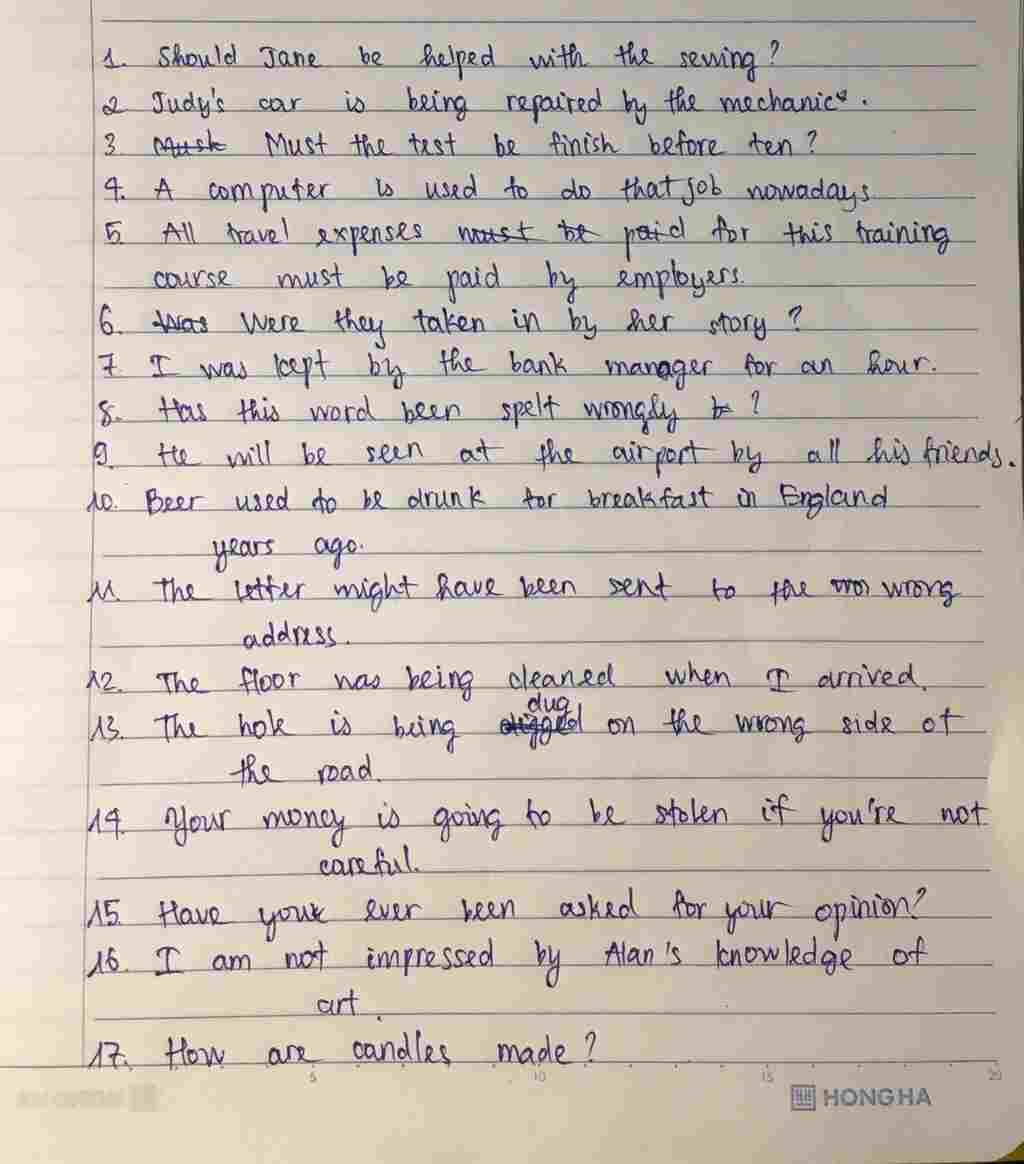 1. Should Jane be helped with the sewing?
2 Judy's car is being repaired by the mechanic.
3 Must Must the test be finish before ten?
4. A computer is used to do that job nowadays
5 All travel expenses must be paid for this training
course must be paid by employers.
6. Was Were they taken in by her story?
7 I was kept by the bank manager for an hour.
8. Has this word been spelt wrongly ?
9. He will be seen at the airport by all his friends.
10. Beer used to be drunk for breakfast in England
years ago.
11. The letter might have been sent to the wrong
address.
12. The floor was being cleaned when I arrived.
dug
13. The hole is being digged on the wrong side of
the road.
14. Your money is going to be stolen if you're not
careful.
15 Have you ever been asked for your opinion?
16. I am not impressed by Alan's knowledge of
art.
17. How are candles made?
5 10 15 20
HONGHA